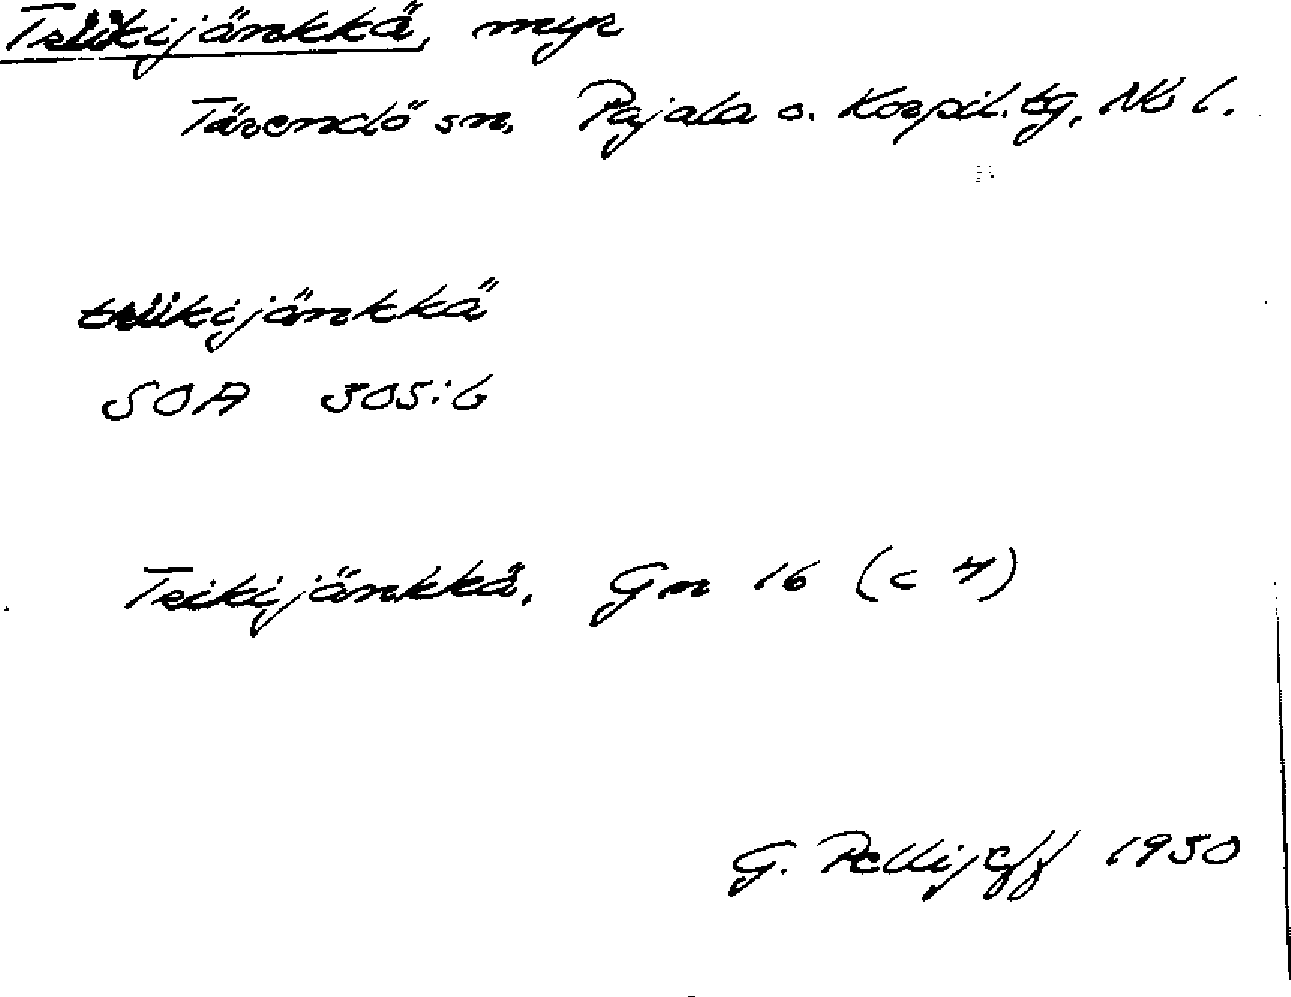 Triikijänkkä, myr
Tärendö sn. Pajala o. Korpil. tg, Nb l.
triikijänkkä
SOA 305:6
Trikijänkkä. Gn 16 (c 4)
G. Pellijeff 1950